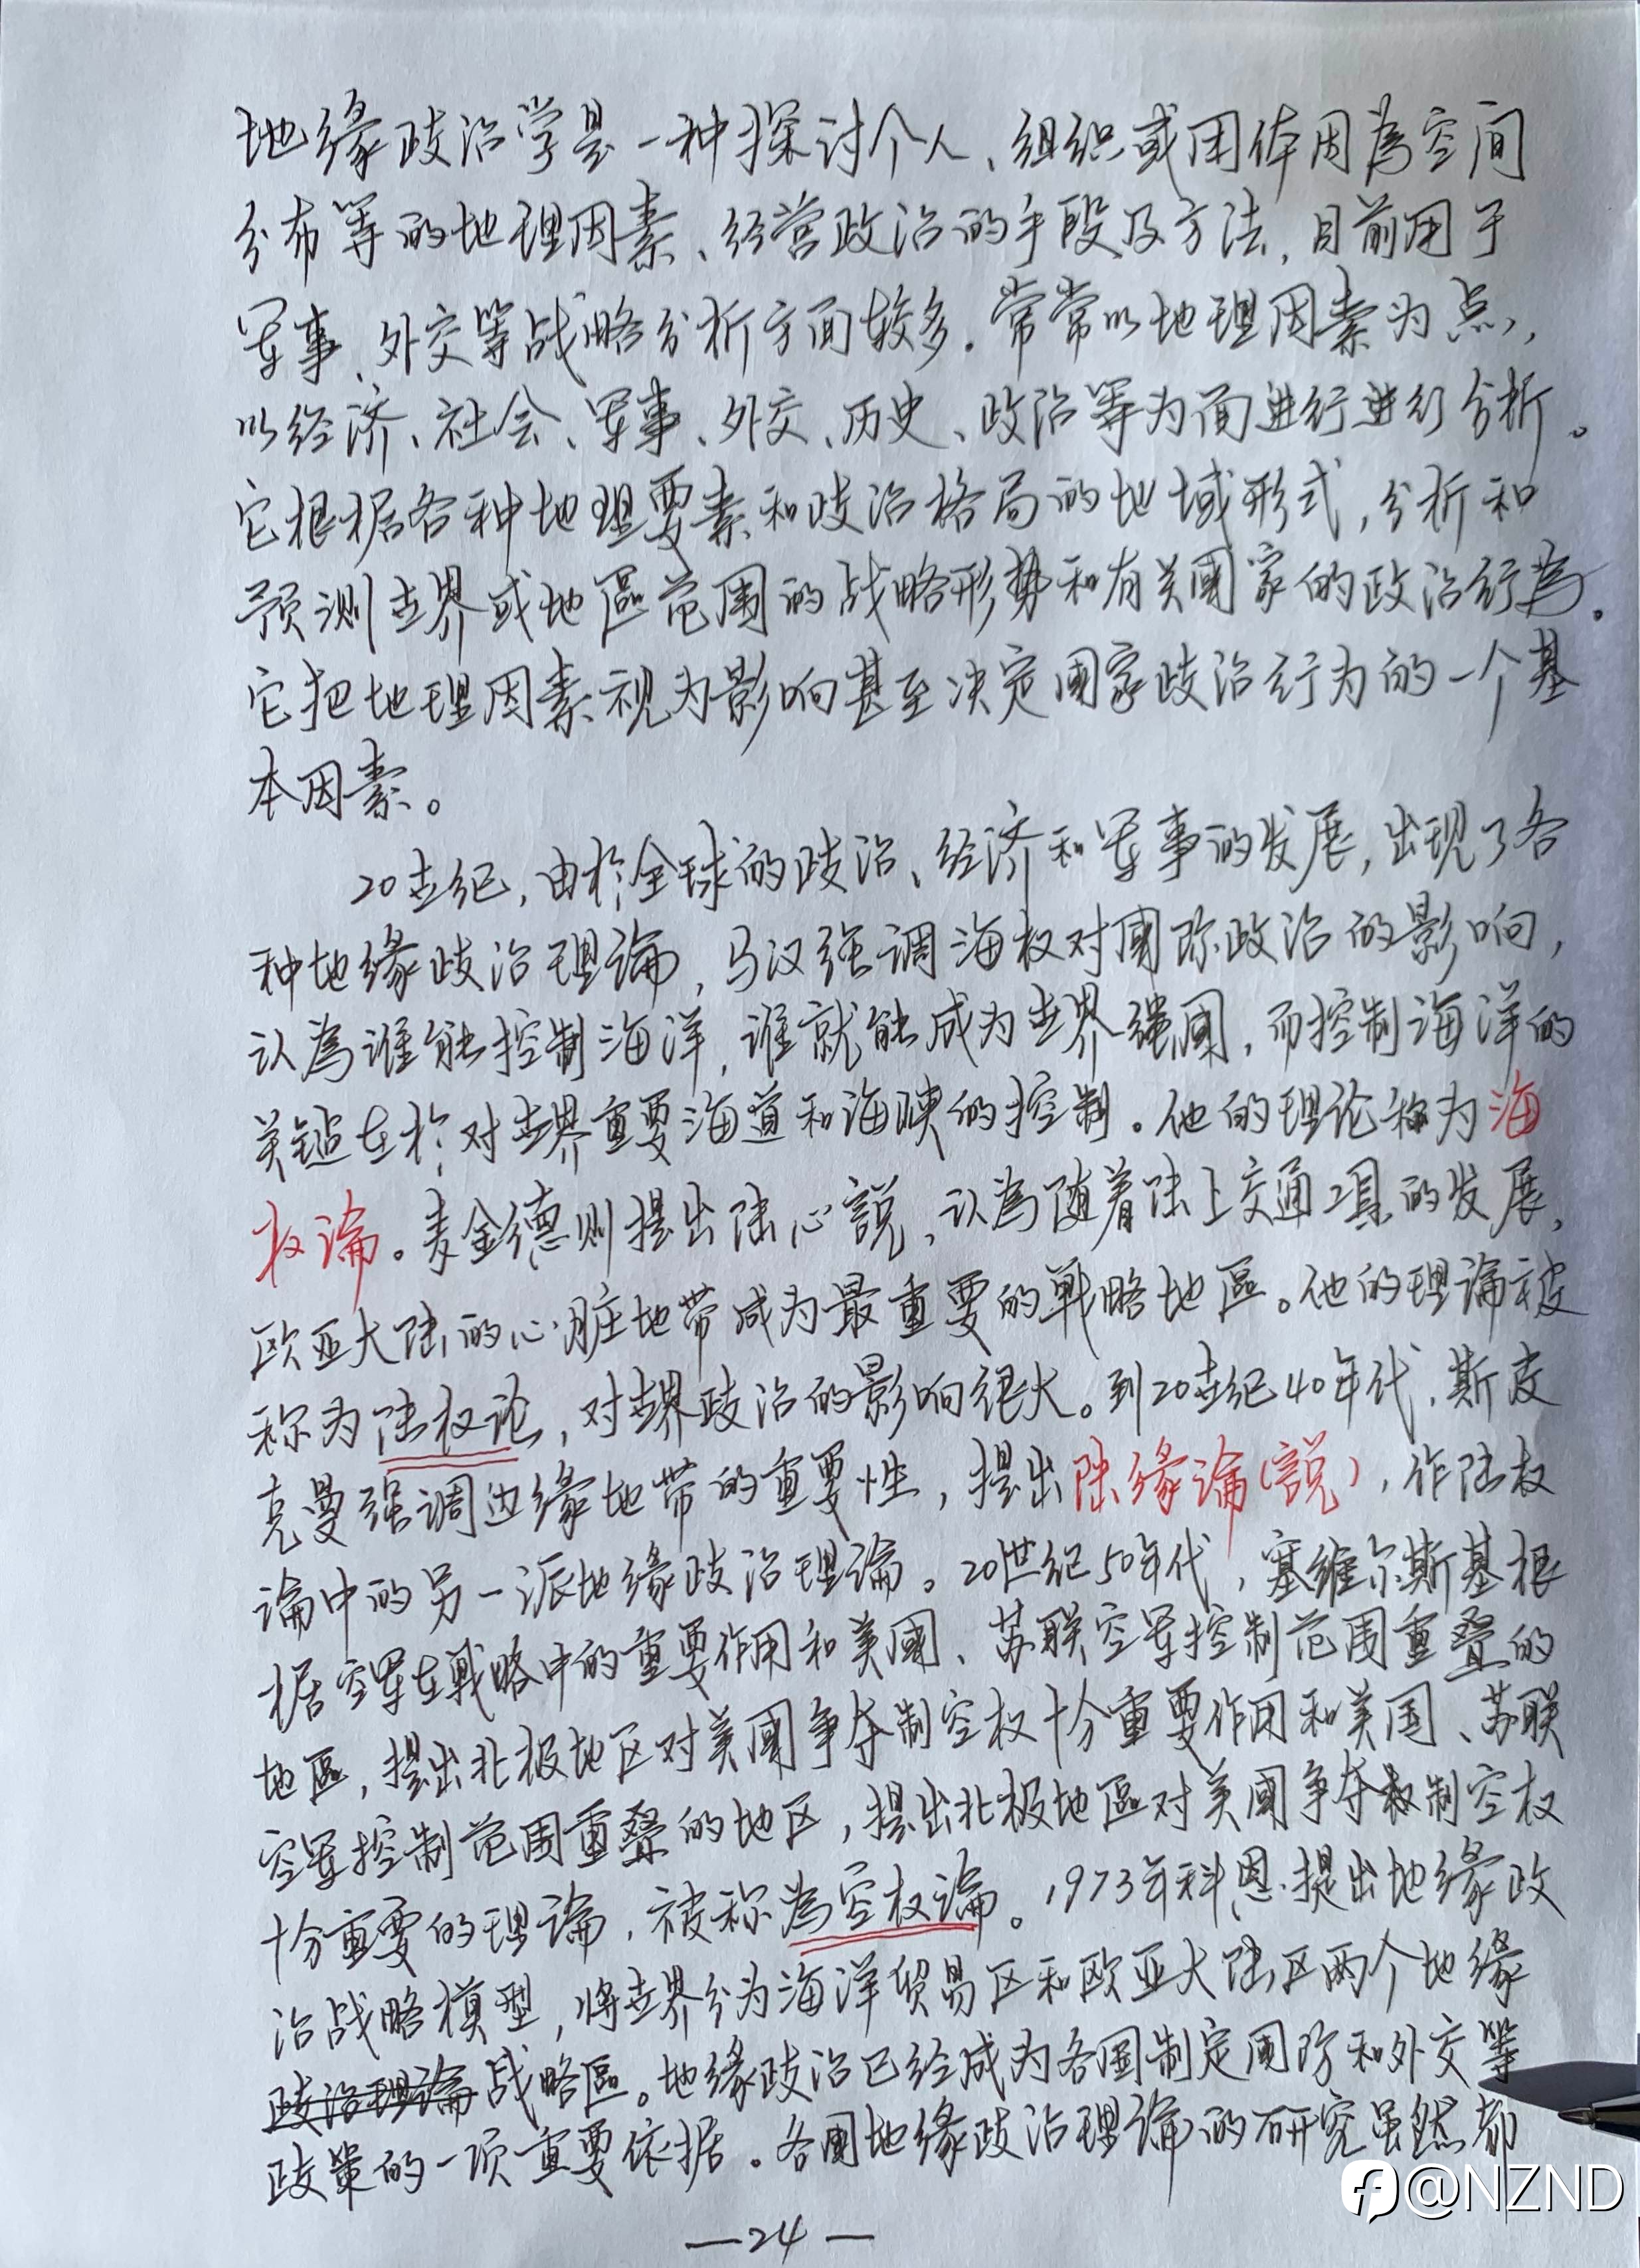 地缘政治学是一种探讨个人、组织或团体因為空间
分布等的地理因素、经营政治的手段及方法,目前用于
军事、外交等战略分析方面较多。常常以地理因素为点,
以经济、社会、军事、外交、历史、政治等为面进行进行分析。
它根据各种地理要素和政治格局的地域形式,分析和
预测世界或地區范围的战略形势和有关國家的政治行為。
它把地理因素视为影响甚至决定國家政治行为的一个基
本因素。
20世纪,由於全球的政治、经济和军事的发展,出现了各
种地缘政治理論,马汉强调海权对國际政治的影响,
认為谁能控制海洋,谁就能成为世界强國,而控制海洋的
关键在於对世界重要海道和海峡的控制。他的理论称为海
权論。麦金德则提出陆心說,认為随着陆上交通工具的发展,
欧亚大陆的心脏地带成为最重要的戰略地區。他的理論被
称为陆权论,对世界政治的影响很大。到20世纪40年代,斯皮
克曼强调边缘地带的重要性,提出陆缘論(說),作陆权
論中的另一派地缘政治理論。20世纪50年代,塞维尔斯基根
据空军在戰略中的重要作用和美國、苏联空军控制范围重叠的
地區,提出北极地区对美國争夺制空权十分重要作用和美国、苏联
空军控制范围重叠的地区,提出北极地區对美國争夺制空权
十分重要的理論,被称為空权論。1973年科恩提出地缘政
治战略模型,将世界分为海洋贸易区和欧亚大陆区两个地缘
政治理論战略區。地缘政治已经成为各国制定国防和外交等
政策的一项重要依据。各国地缘政治理論的研究虽然都
—24—
@NZND